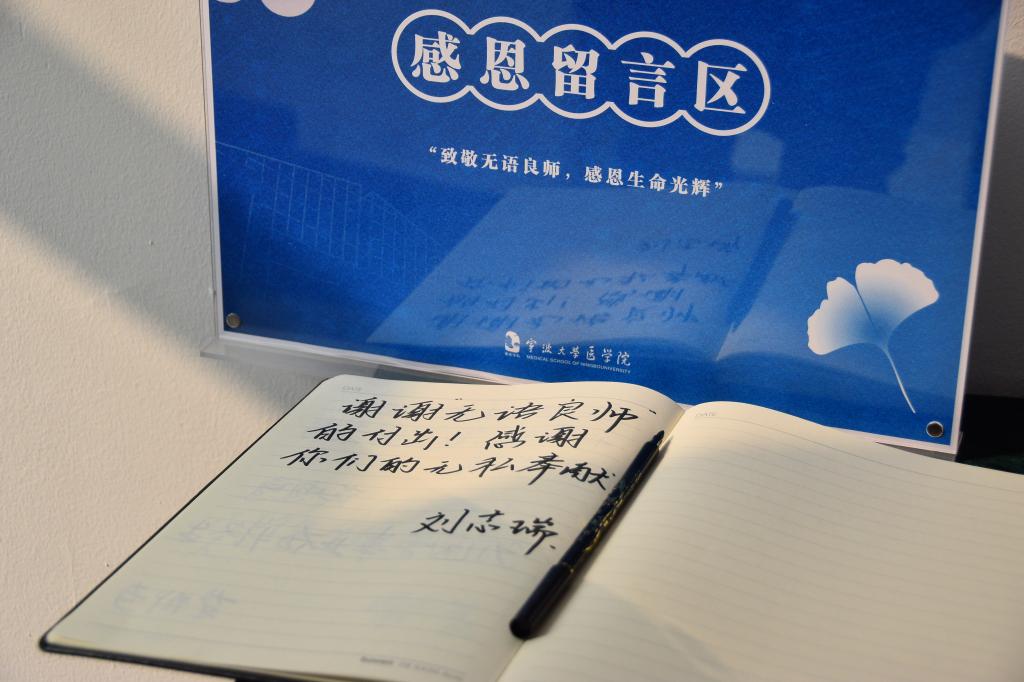 感恩留言区
“致敬无语良师，感恩生命光辉”
宁波大学医学院
MEDICAL SCHOOL OF NINGBO UNIVERSITY
DATE
谢谢“无语良师”
的付出！感谢
你们的无私奉献
刘志瑞.
DATE